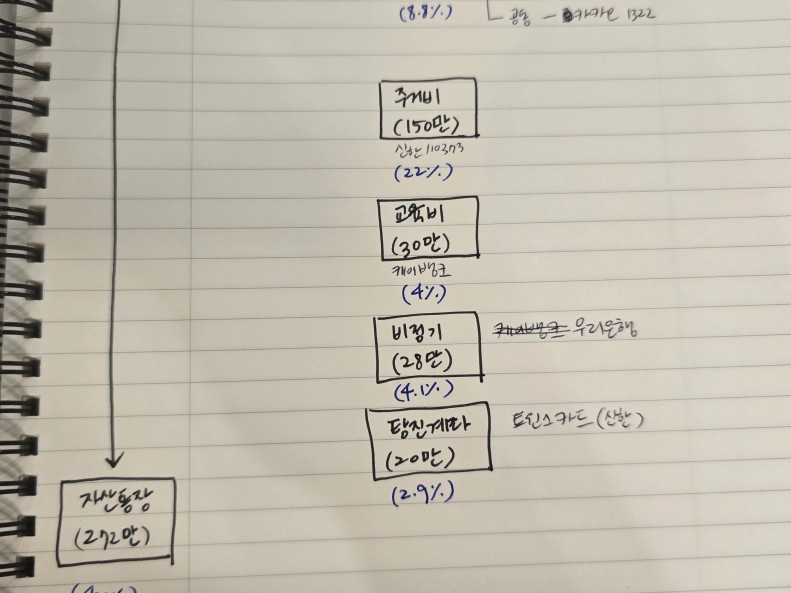 (8.8%)
공동 - 카카오 1322
주거비
(150만)
신한 110373
(22%)
교육비
(30만)
케이뱅크
(4%)
비정기
(28만)
케이뱅크 우리은행
(4.1%)
탕진계좌
(20만)
토인스카드 (신한)
(2.9%)
자산통장
(272만)